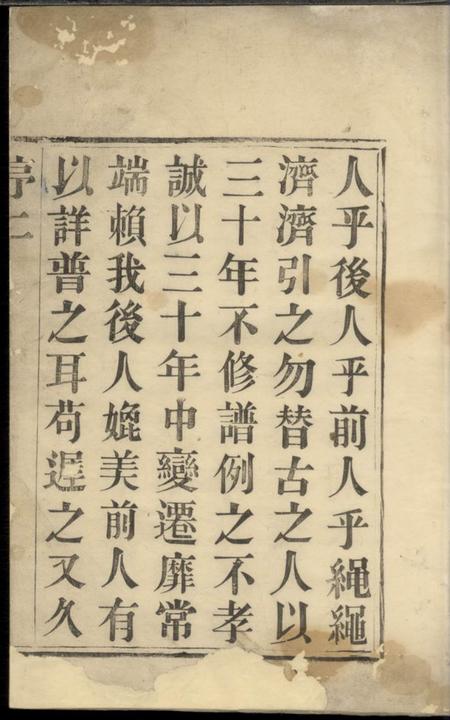 人乎後人乎前人乎繩繩
濟濟引之勿替古之人以
三十年不修譜例之不孝
誠以三十年中變遷靡常
端賴我後人媲美前人有
以詳普之耳苟遲之又久
序二